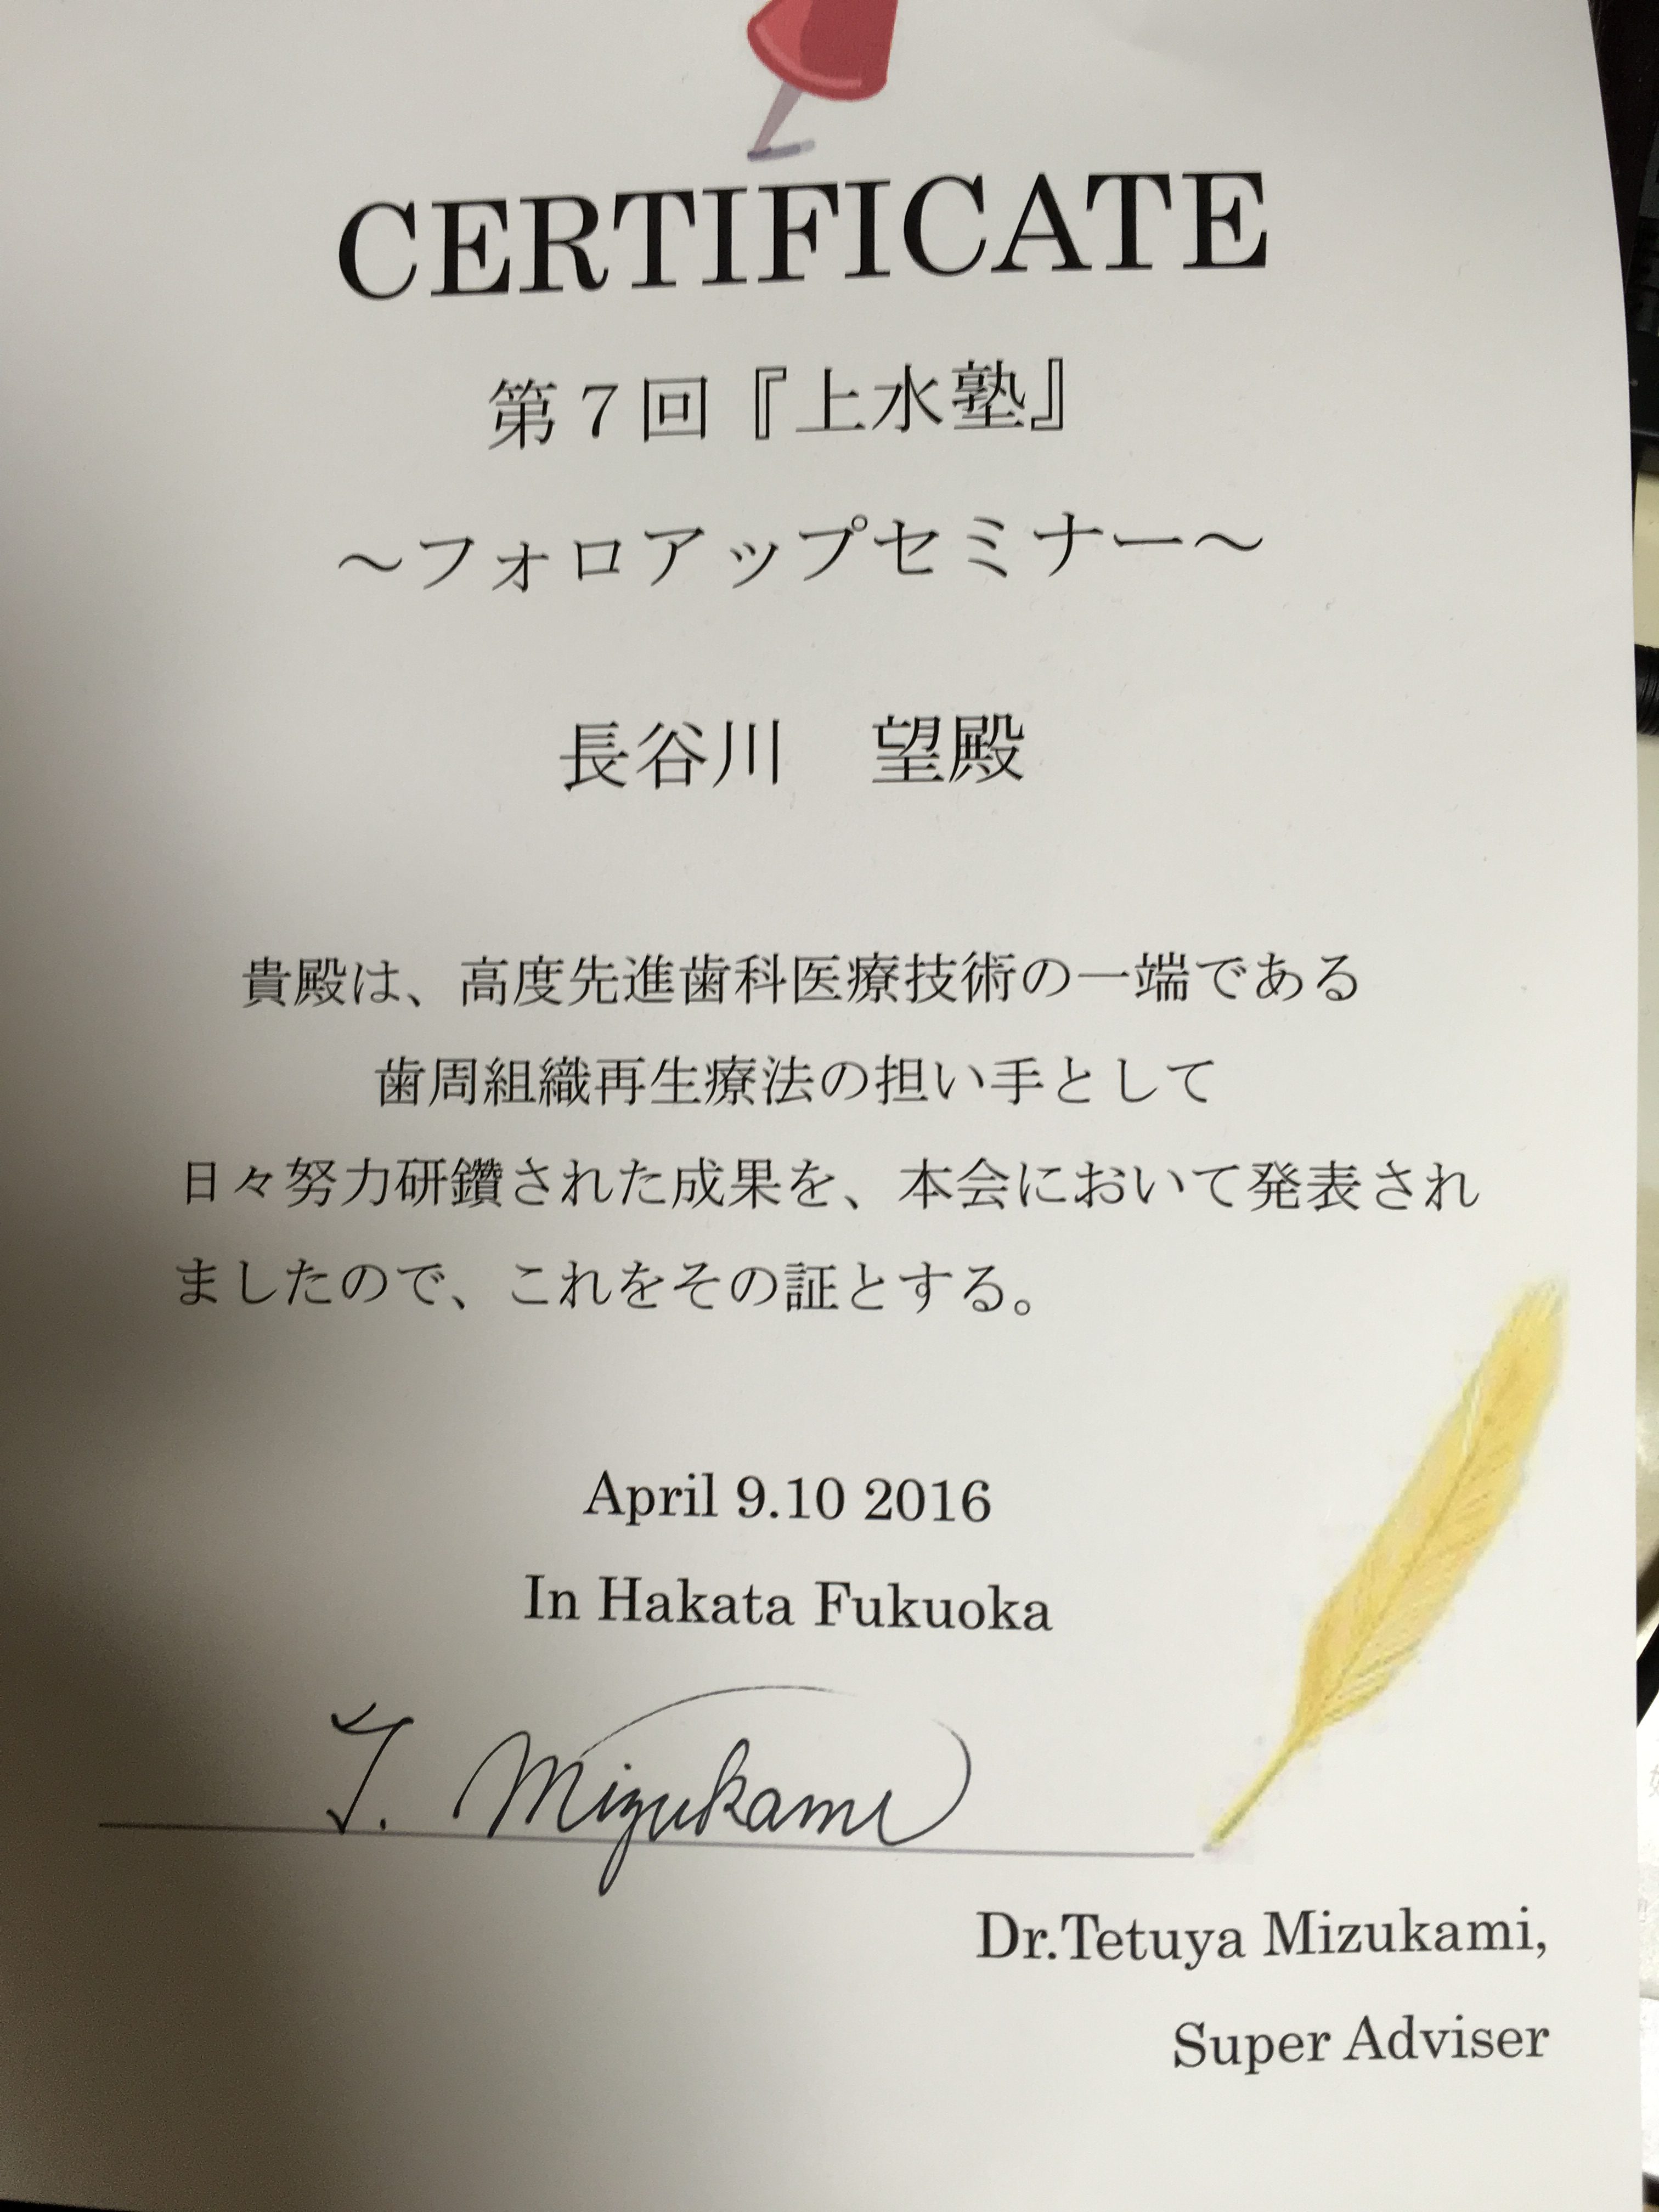 CERTIFICATE
第７回『上水塾』
～フォロアップセミナー～
長谷川　望殿
貴殿は、高度先進歯科医療技術の一端である
歯周組織再生療法の担い手として
日々努力研鑽された成果を、本会において発表され
ましたので、これをその証とする。
April 9.10 2016
In Hakata Fukuoka
T. Mizukami
Dr.Tetuya Mizukami,
Super Adviser